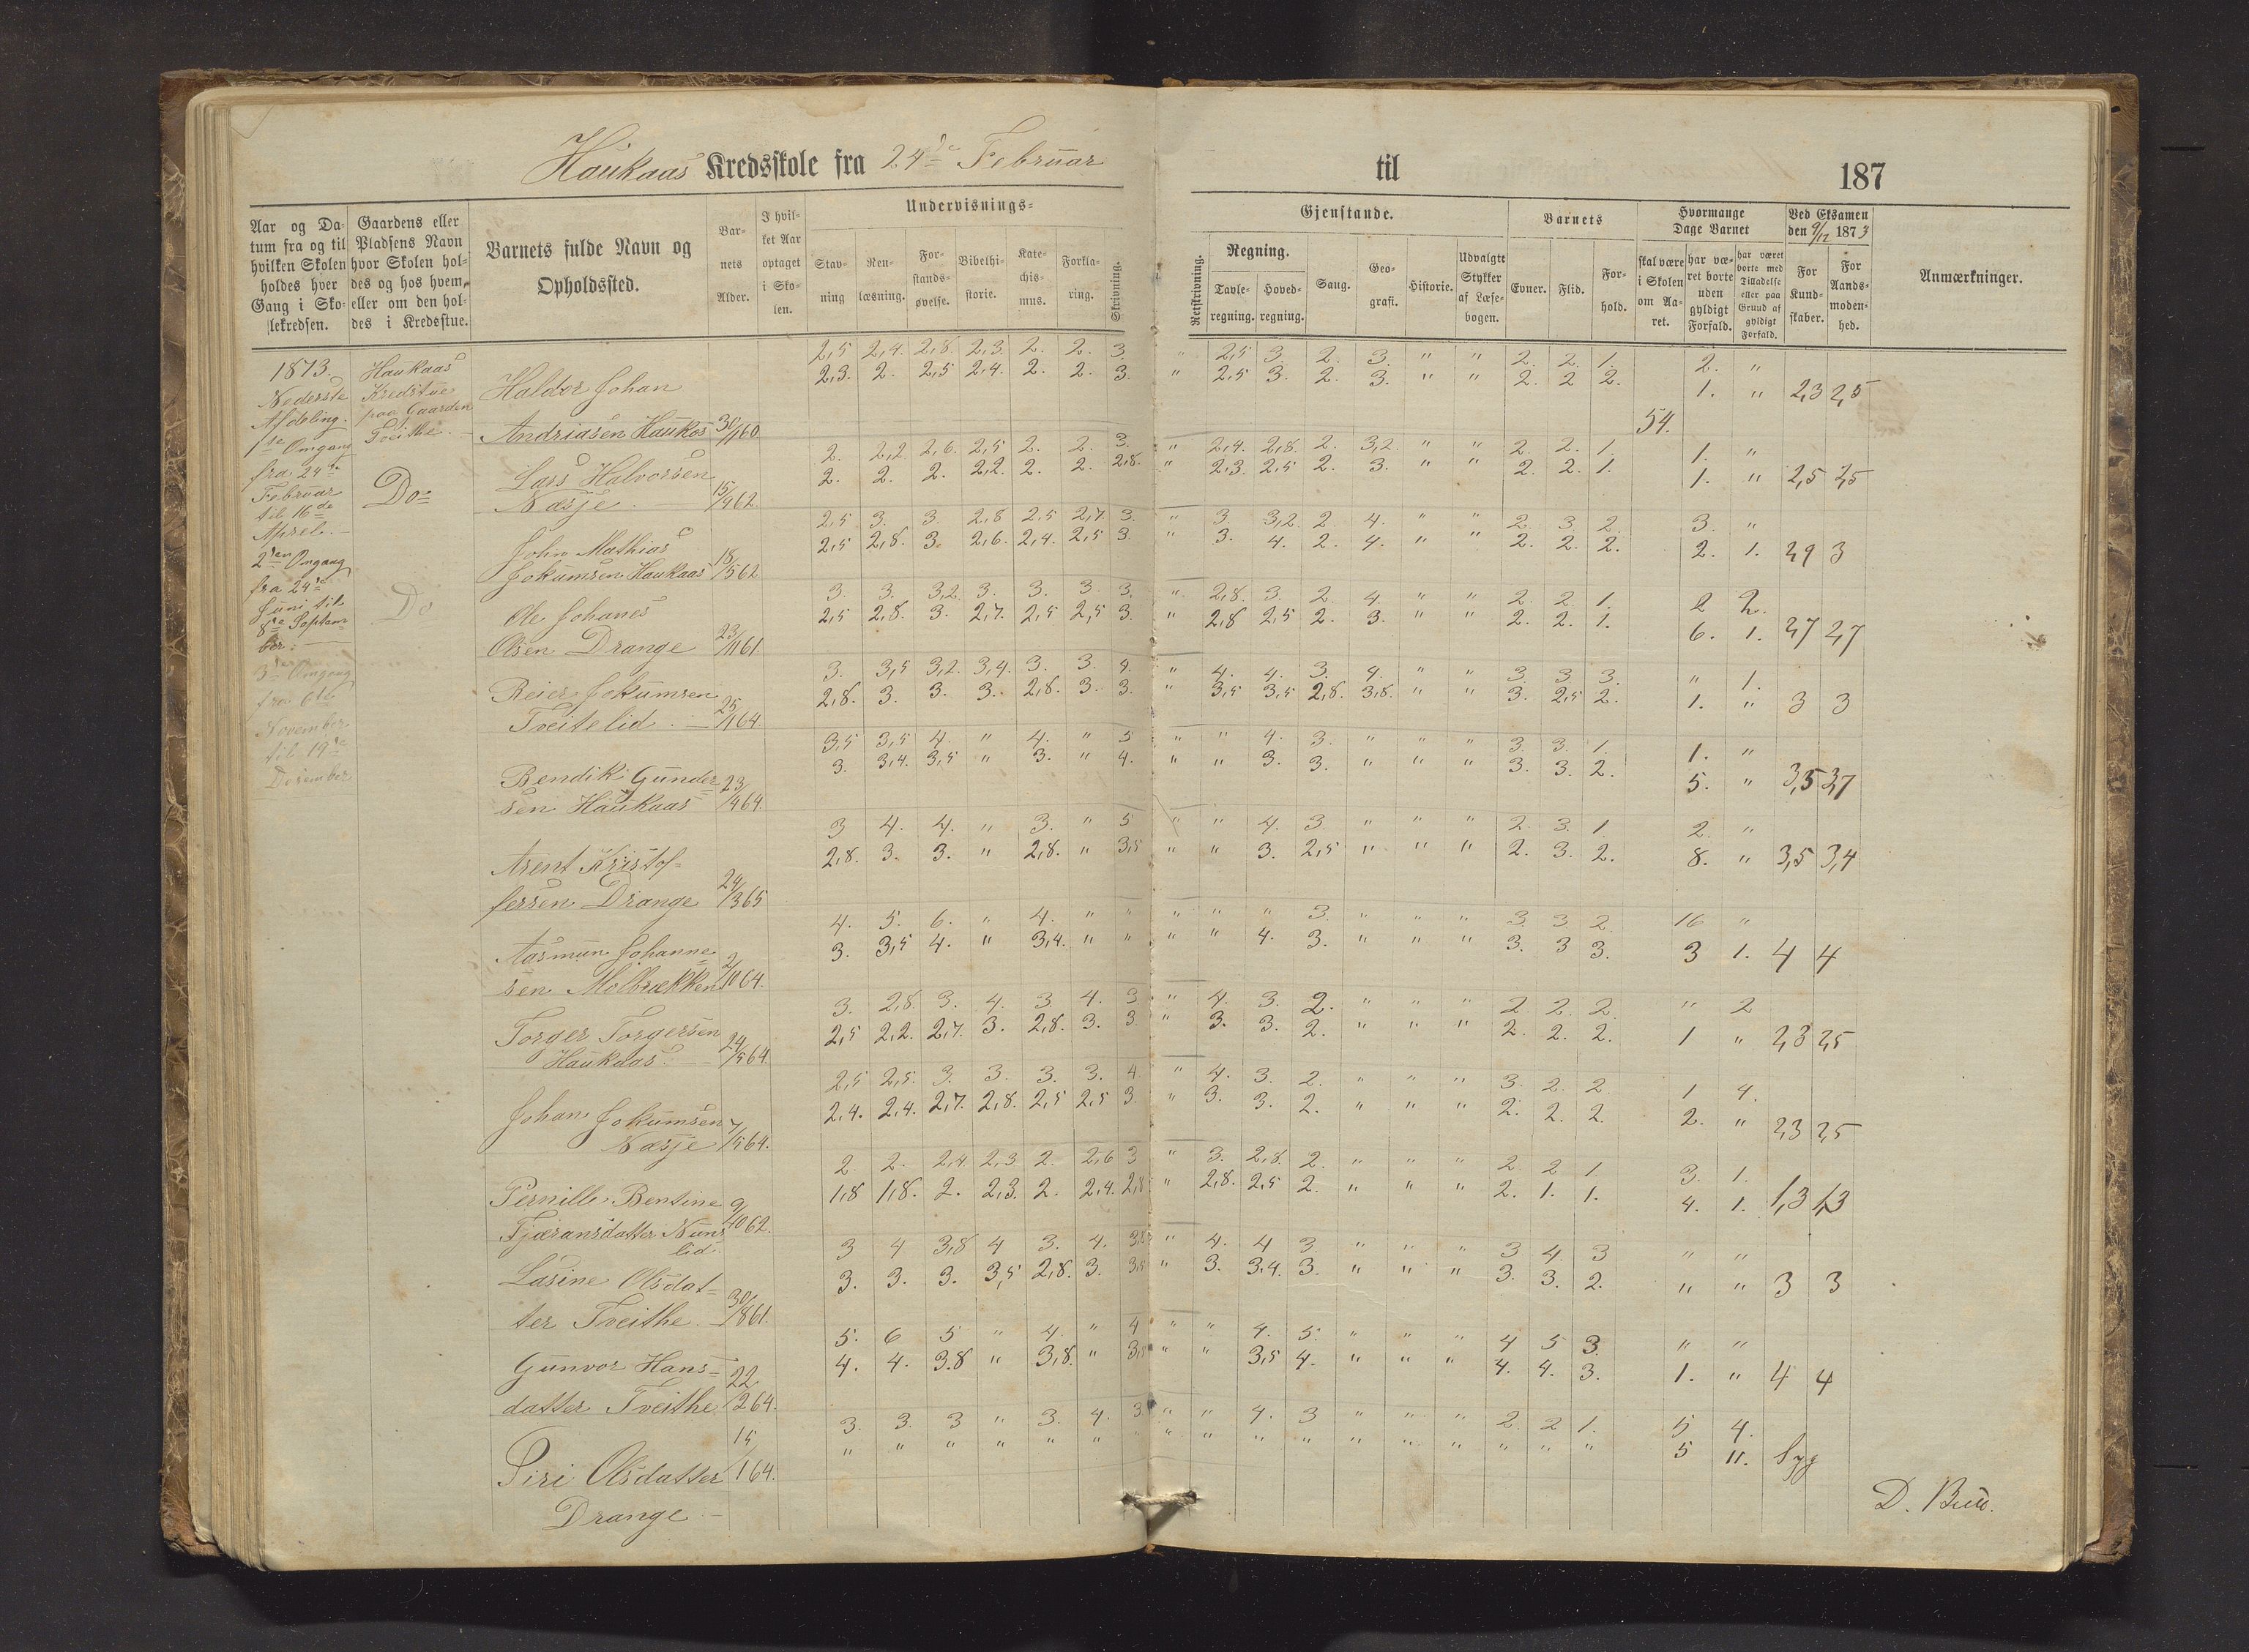 Haukaas Kredsskole fra 24de Februar til 187
Aar og Da-
tum fra og til
hvilken Skolen
holdes hver
Gang i Sko-
lekredsen.
Gaardens eller
Pladsens Navn
hvor Skolen hol-
des og hos hvem,
eller om den hol-
des i Kredsstue.
Barnets fulde Navn og
Opholdssted.
Bar-
nets
Alder.
I hvil-
ket Aar
optaget
i Sko-
len.
Undervisnings-
Stav-
ning
Ren-
læsning.
For-
stands-
øvelse.
Bibelhi-
storie.
Kate-
chis-
mus.
Forkla-
ring.
Skrivning.
Gjenstande.
Retskrivning.
Regning.
Tavle-
regning.
Hoved-
regning.
Sang.
Geo-
grafi.
Historie.
Udvalgte
Stykker
af Læse-
bogen.
Barnets
Evner.
Flid.
For-
hold.
Hvormange
Dage Barnet
skal være
i Skolen
om Aa-
ret.
har væ-
ret borte
uden
gyldigt
Forfald.
har været
borte med
Tilladelse
eller paa
Grund af
gyldigt
Forfald.
Ved Eksamen
den 9/12 1873
For
Kund-
skaber.
For
Aands-
moden-
hed.
Anmærkninger.
1873.
Nederste
Afdeling.
1ste Omgang
fra 24de
Februar
til 16de
Aprel.
2den Omgang
fra 24de
Juni til
8de Septem-
ber.
3die Omgang
fra 6te
November
til 19de
Desember
Haukaas
Kredstue
paa Gaarden
Tveithe.
Do
Do
Haldor Johan
Andriasen Haukås 30/1 60
2,5 2,4. 2,8. 2,3. 2. 2. 3. " 2,5 3. 2. 3. " " 2. 2. 1. 2. "
2,3. 2. 2,5 2,4. 2. 2. 3. " 2,5 3. 2. 3. " " 2. 2 2. 1. " 2,3 2,5
54.
Lars Halvorsen
Næsje 15/9 62.
2. 2,2 2,6. 2,5 2. 2. 3. " 2,4. 2,8. 2. 3,2 " " 2. 2. 1. 1. "
2. 2. 2. 2,2. 2. 2. 2,8. " 2,3. 2,5 2. 3. " " 2. 2. 1. 1. " 2,5 2,5
John Mathias
Jokumsen Haukaas 18/5 62
2,5 3. 3. 2,8 2,5 2,7. 3. " 3. 3,2 2. 4. " " 2. 3. 2. 3. "
2,5 2,8. 3. 2,6. 2,4. 2,5 3. " 3. 4. 2. 4. " " 2. 2. 2. 2. 1. 2,9 3
Ole Johanes
Olsen Drange 23/11 61.
3. 3. 3,2 3. 3. 3. 3. " 2,8. 3. 2. 4. " " 2. 2. 1. 2 2.
2,5 2,8. 3. 2,7. 2,5 2,5 3. " 2,8 2,5 2. 3. " " 2. 2. 1. 6. 1. 2,7 2,7
Reier Jokumsen
Tveitelid 25/1 64.
3. 3,5 3,2. 3,4. 3. 3. 4. " 4. 4. 3. 4. " " 3. 3. 3. " 1.
2,8. 3. 3. 3. 2,8. 3. 3. " 3,5 3,5 2,8. 3,8. " " 3. 2,5 2. 1. " 3 3
Bendik Gunder-
sen Haukaas 23/4 64.
3,5 3,5 4. " 4. " 5 " " 4. 3. " " " 3. 3. 1. 1. "
3. 3,4. 3,5 " 3. " 4. " " 3. 3. " " " 3. 3. 2. 5. " 3,5 3,7
Arent Kristof-
fersen Drange 24/3 65
3 4. 4. " 3. " 5 " " 4. 3. " " " 2. 3. 1 2. "
2,8. 3. 3. " 2,8. " 3,5 " " 3. 2,5 " " " 2. 3. 2. 8. " 3,5 3,4
Aasmun Johanne-
sen Molbrækken 2/10 64.
4. 5. 6. " 4. " " " " " 3. " " " 3. 3 2. 16 "
3. 3,5 4. " 3,4. " " " " 4. 3. " " " 3. 3 3. 3 1. 4 4
Torger Torgersen
Haukaas 24/5 64.
3. 2,8 3. 4. 3. 4. 3 " 4. 3. 2. " " " 2 2. 2. " 2
2,5 2,2. 2,7. 3. 2,8. 3. 3 " 3. 3. 2. " " " 2. 2. 2. 1 " 2,3 2,5
Johan Jokumsen
Næsje 7/5 64.
2,5 2,5. 3. 3. 3. 3. 4 " 4. 3. 2. " " " 3. 2. 2 1 4.
2,4. 2,4. 2,7. 2,8. 2,5 2,5 3. " 3. 3. 2. " " " 2. 2. 2. 2. " 2,3 2,5
Pernille Bentine
Tjæransdatter Nuns-
lid. 9/10 62.
2. 2. 2,4 2,3 2. 2,6 3 " 3. 2,8. 2. " " " 2. 2. 1 3. 1.
1,8 1,8. 2. 2,3. 2. 2,4. 2,8 " 2,8. 2,5 2. " " " 2. 1. 1. 4. 1. 1,3 1,3
Lasine Olsdat-
ter Tveithe 30/8 61.
3 4 3,8 4 3. 4. 3,8 " 4. 4 3. " " " 3 4. 3 " "
3. 3. 3. 3,5 2,8. 3. 3,5 " 3. 3,4. 3. " " " 3. 3. 2. " " 3 3
Gunvor Hans-
datter Tveithe 22/2 64.
5. 6 5 " 4. " 4 " " 4. 5. " " " 4 5 3. " "
4. 4. 3.8 " 3,8. " 3,5 " " 3,5 4. " " " 4. 4. 3. 1. " 4 4
Piri Olsdatter
Drange 15/1 64.
3. 3. 3 " 3. 4. 3 " " 4. 3 " " " 2. 2 1. 5 4.
" " " " " " " " " " " " " " " " " 5 11. Syg